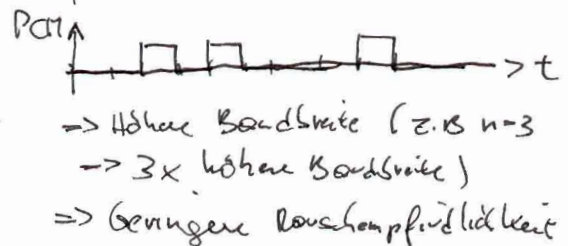 PCM
t
=> Höhere Bandbreite (z.B n=3
-> 3x höhere Bandbreite)
=> Geringere Rauschempfindlichkeit